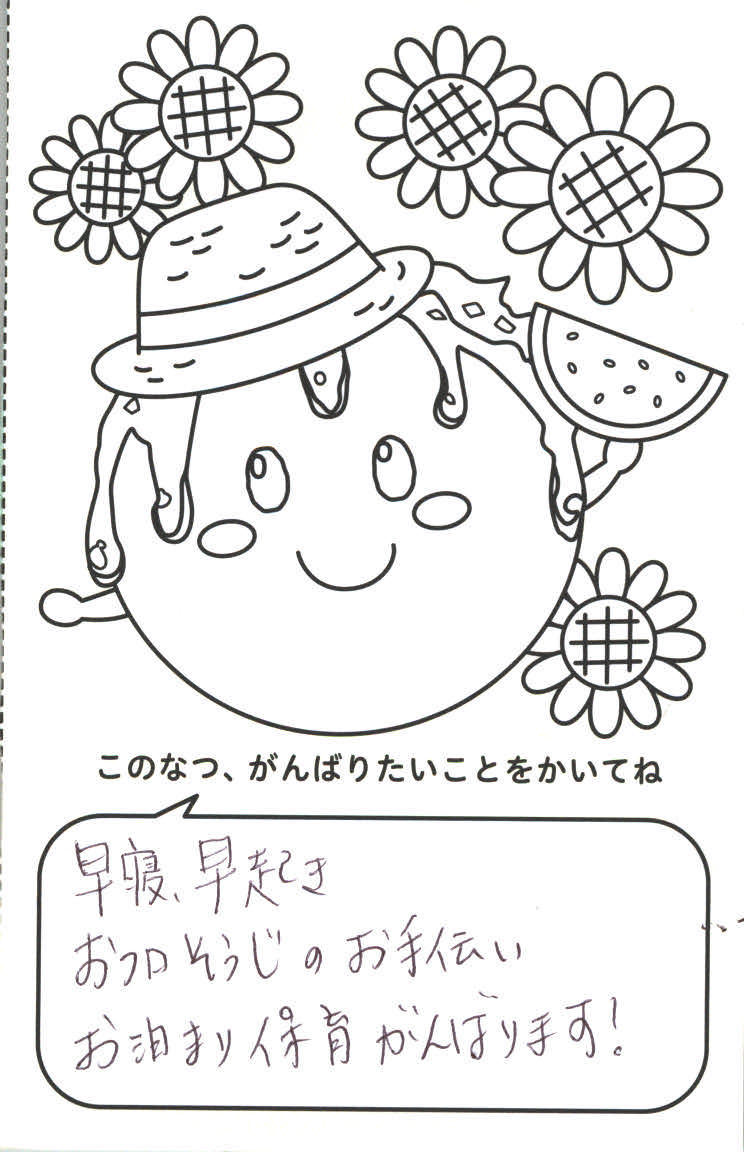 このなつ、がんばりたいことをかいてね
早寝、早起き
おフロそうじのお手伝い
お泊まり保育がんばります!